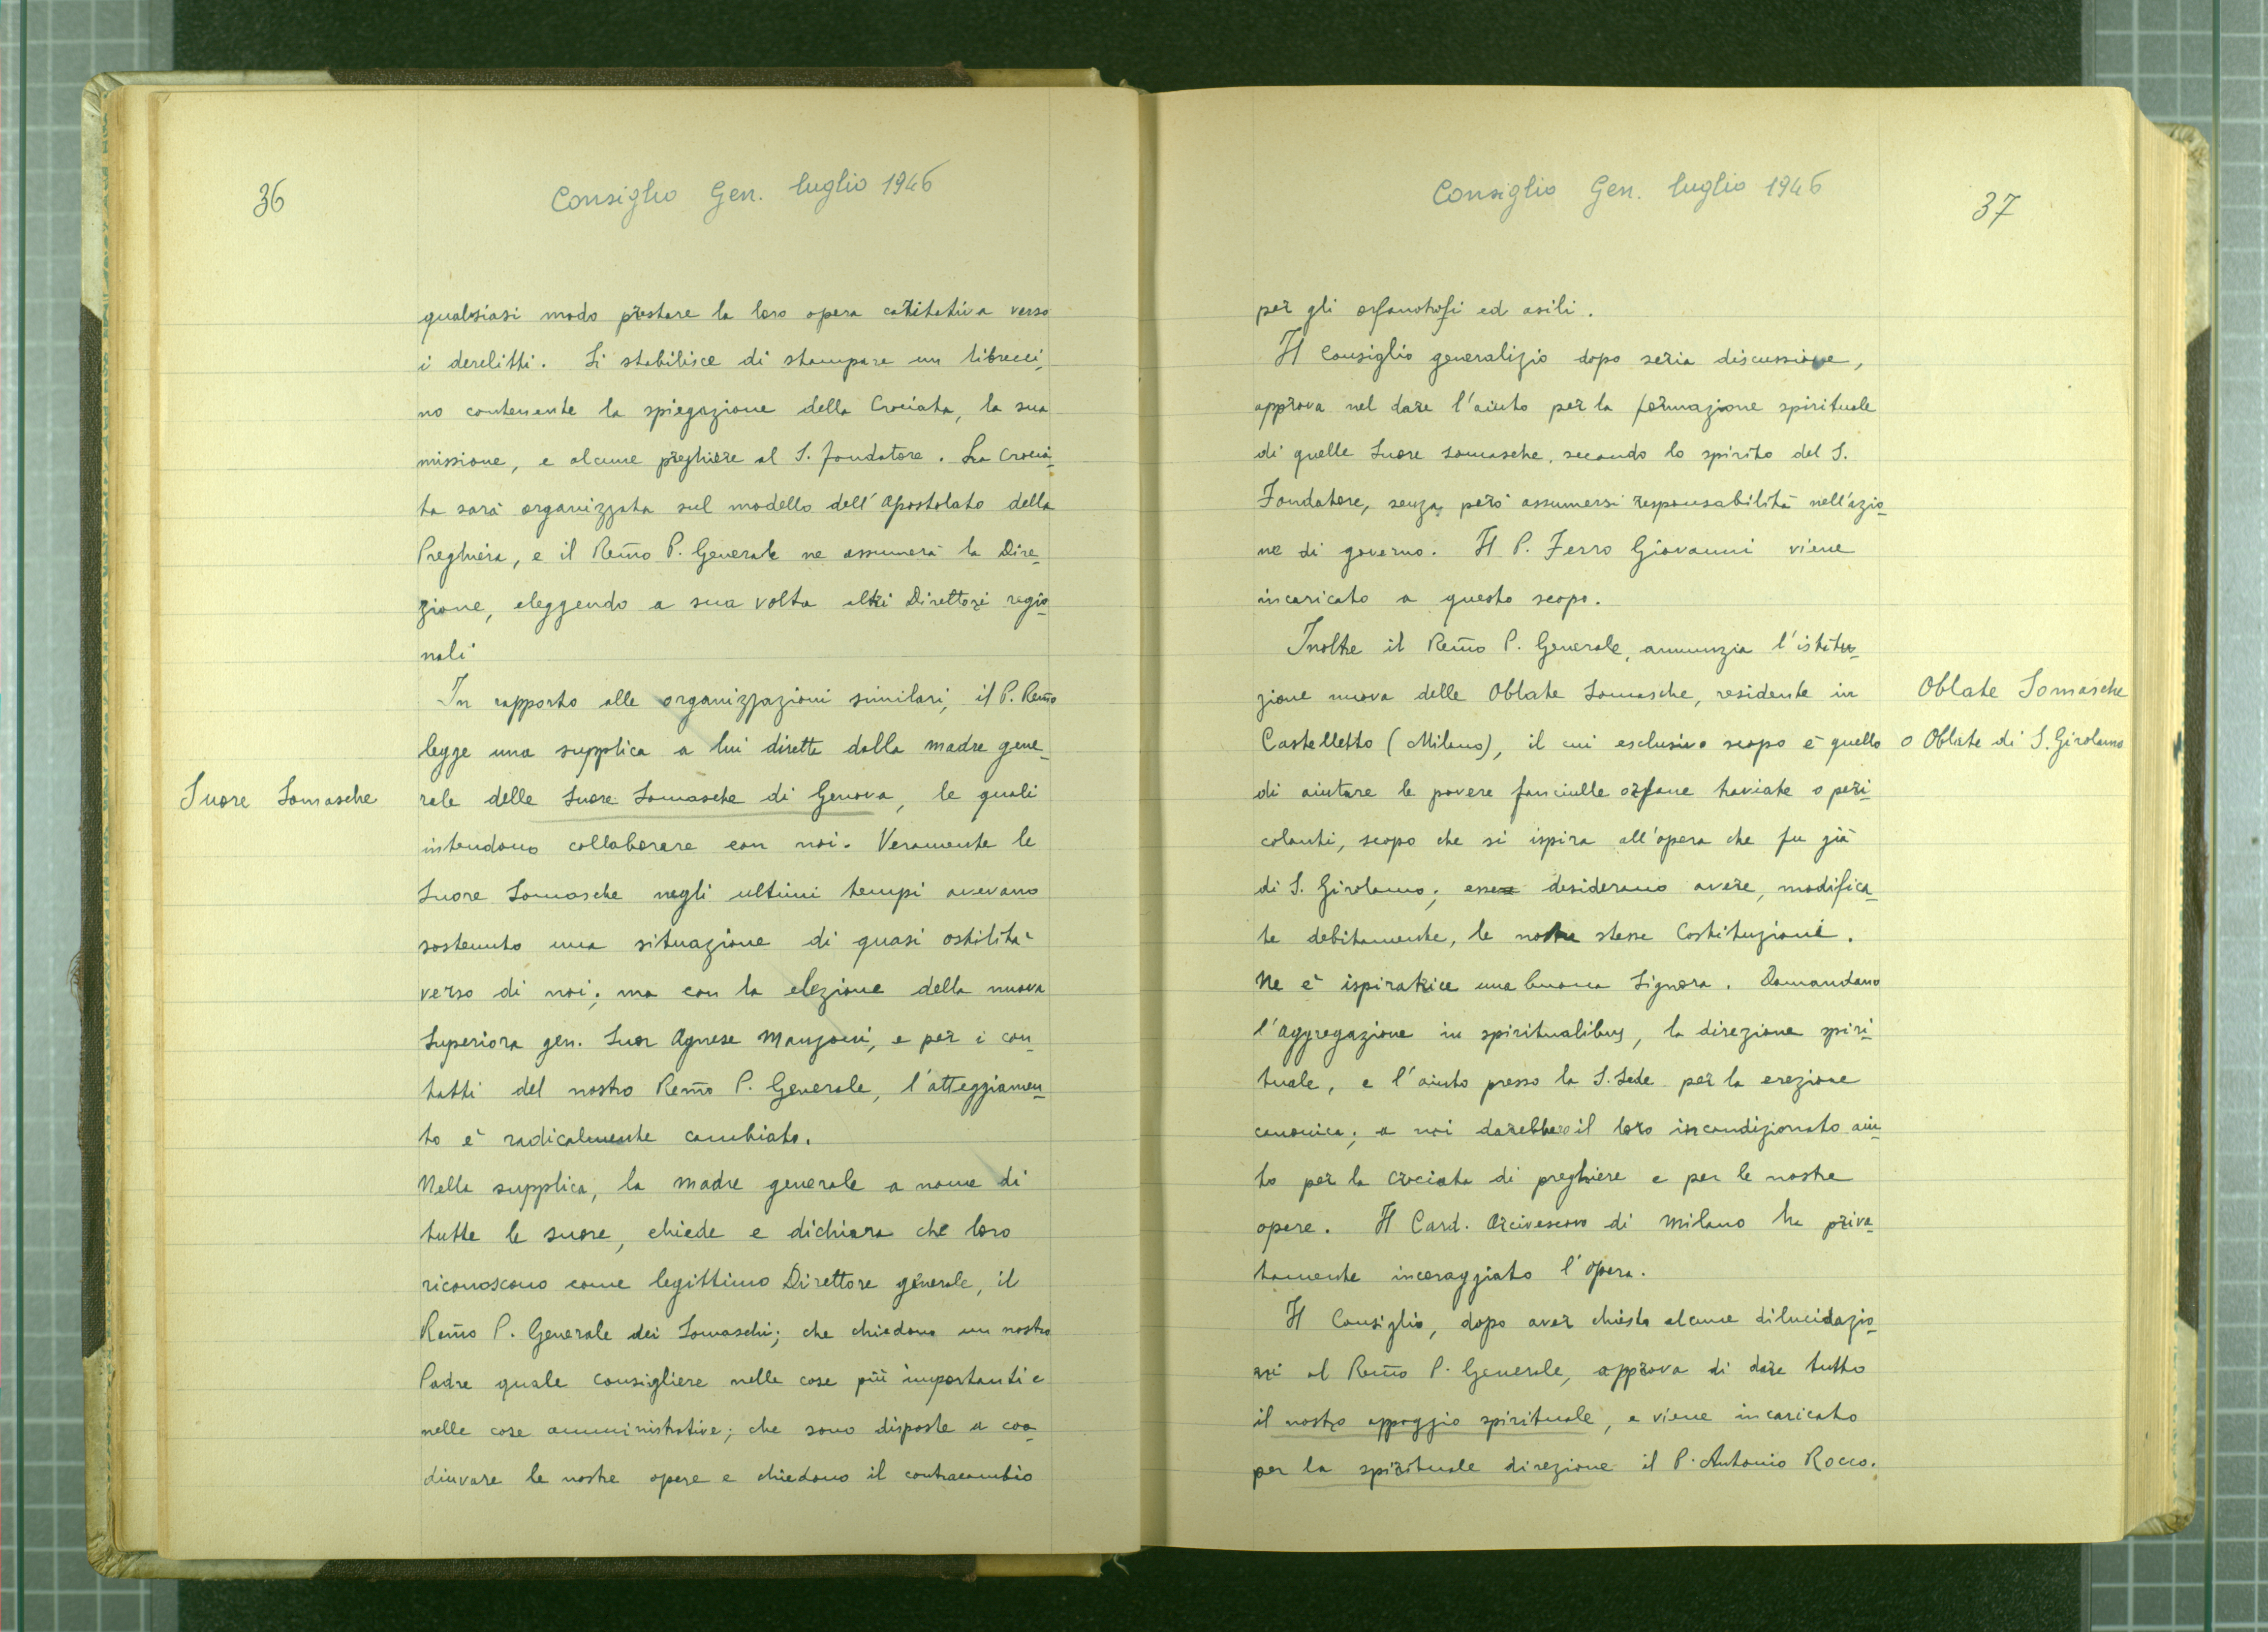 36
Consiglio Gen. luglio 1946
qualsiasi modo prestare la loro opera caritativa verso
i derelitti. Si stabilisce di stampare un librecci_
no contenente la spiegazione della Crociata, la sua
missione, e alcune preghiere al S. fondatore. La Crocia_
ta sarà organizzata sul modello dell'Apostolato della
Preghiera, e il Rem̃o P. Generale ne assumerà la Dire_
zione, eleggendo a sua volta altri Direttori regio_
nali
In rapporto alle organizzazioni similari, il P. Rem̃o
legge una supplica a lui diretta dalla madre gene_
Suore Somasche
rale delle Suore Somasche di Genova, le quali
intendono collaborare con noi. Veramente le
Suore Somasche negli ultimi tempi avevano
sostenuto una situazione di quasi ostilità
verso di noi; ma con la elezione della nuova
Superiora gen. Suor Agnese Manzoni, e per i con_
tatti del nostro Rem̃o P. Generale, l'atteggiamen_
to è radicalmente cambiato.
Nella supplica, la madre generale a nome di
tutte le suore, chiede e dichiara che loro
riconoscono come legittimo Direttore generale, il
Rem̃o P. Generale dei Somaschi; che chiedono un nostro
Padre quale consigliere nelle cose più importanti e
nelle cose amministrative; che sono disposte a coa_
diuvare le nostre opere e chiedono il contraccambio
Consiglio Gen. luglio 1946
37
per gli orfanotrofi ed asili.
Il Consiglio generalizio dopo seria discussione,
approva nel dare l'aiuto per la formazione spirituale
di quelle Suore somasche, secondo lo spirito del S.
Fondatore, senza però assumersi responsabilità nell'azio_
ne di governo. Il P. Ferro Giovanni viene
incaricato a questo scopo.
Inoltre il Rem̃o P. Generale, annunzia l'istitu_
zione nuova delle Oblate Somasche, residente in
Oblate Somasche
Castelletto (Milano), il cui esclusivo scopo è quello
o Oblate di S. Girolamo
di aiutare le povere fanciulle orfane traviate o peri_
colanti, scopo che si ispira all'opera che fu già
di S. Girolamo; esse desiderano avere, modifica_
te debitamente, le nostre stesse Costituzioni.
Ne è ispiratrice una buona Signora. Domandano
l'aggregazione in spiritualibus, la direzione spiri_
tuale, e l'aiuto presso la S. Sede per la erezione
canonica; a noi darebbero il loro incondizionato aiu_
to per la crociata di preghiere e per le nostre
opere. Il Card. Arcivescovo di Milano ha priva_
tamente incoraggiato l'opera.
Il Consiglio, dopo aver chiesto alcune dilucidazio_
ni al Rem̃o P. Generale, approva di dare tutto
il nostro appoggio spirituale, e viene incaricato
per la spirituale direzione il P. Antonio Rocco.